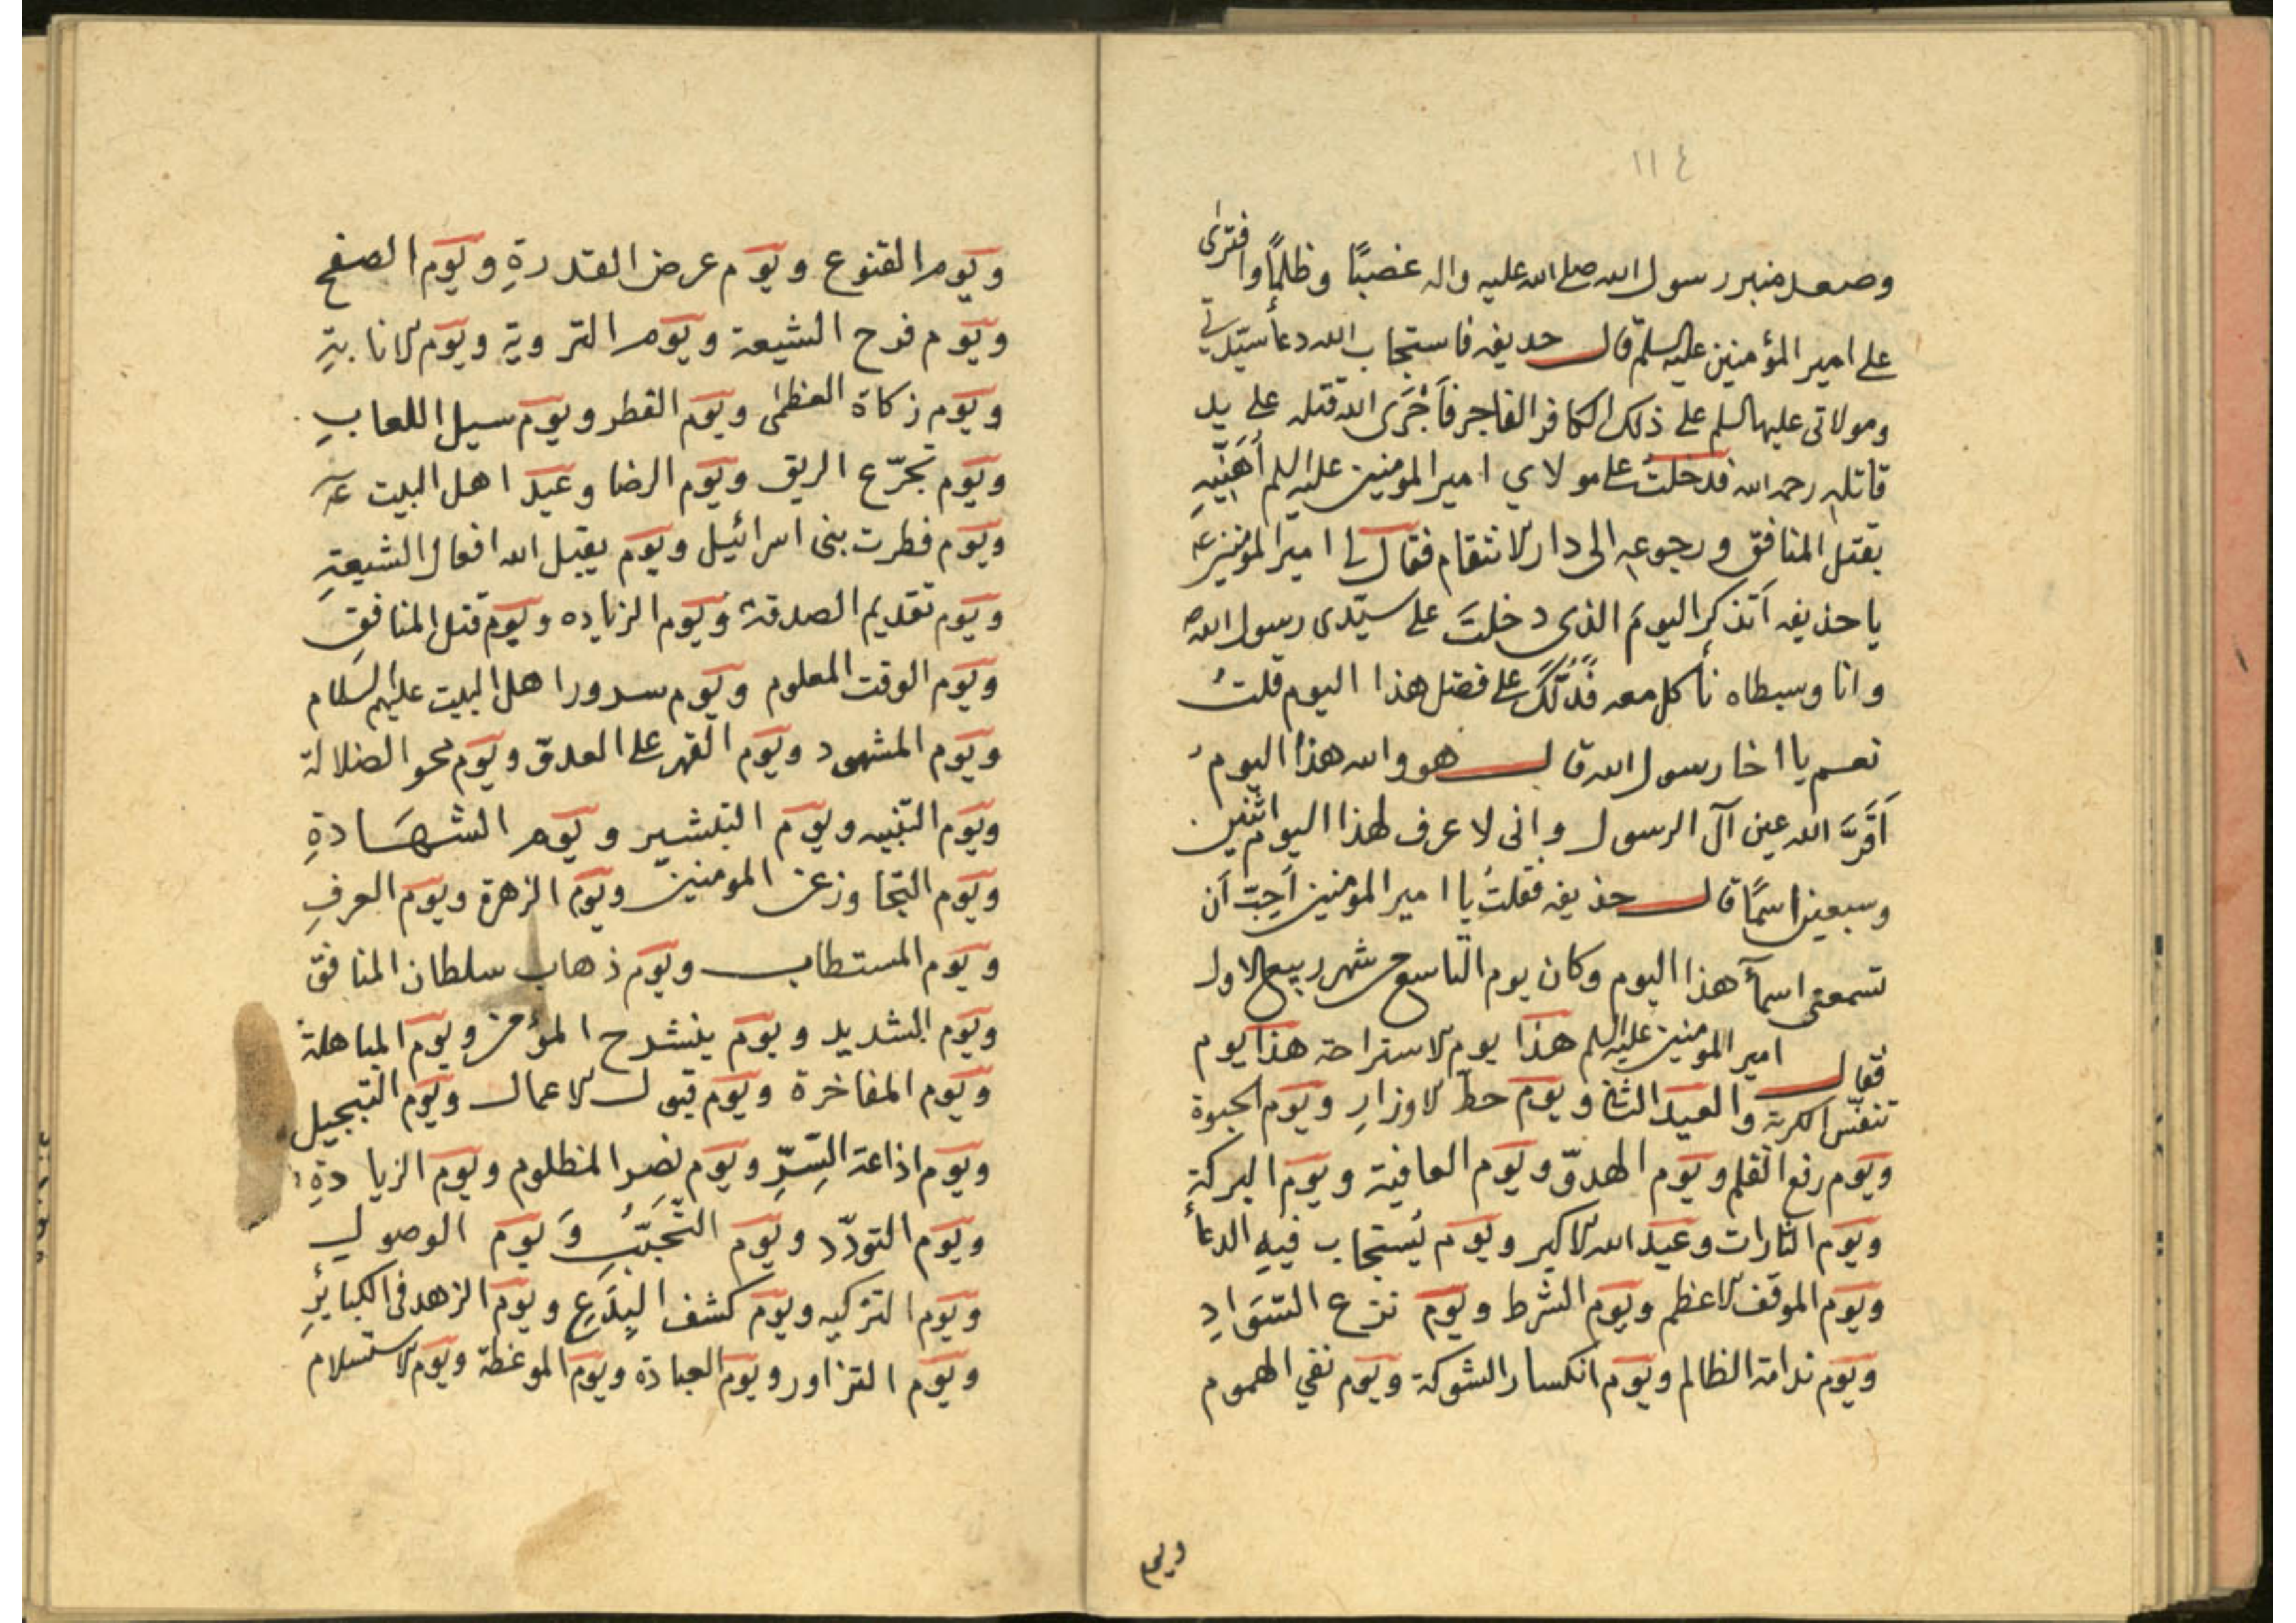 ١١٤
وصعد منبر رسول الله صلى الله عليه واله غصبًا وظلمًا وافترى
على امير المؤمنين عليه السلم قال حذيفه فاستجاب الله دعأ سيّدتي
ومولاتى عليها السلم على ذلك الكافر الفاجر فأجْرَى الله قتله على يد
قاتله رحمه الله فدخلتُ على مولاي امير المومنين عليه السلم أهَنّيهِ
بقتل المنافق ورجوعه الى دار الانتقام فقال لى امير المومنين ع
يا حذيفه اَتذكر اليومَ الذى دخلتَ على سيّدى رسول الله ص
وانا وسبطاه نأكل معه فَدُلَّكَ على فضل هذا اليوم قلتُ
نعم يا اخا رسول الله قال هو والله هذا اليوم
اَقَرَّ الله عين آل الرسول وانى لاعرف لهذا اليوم اثنين
وسبعين اسمًا قال حذيفه فقلتُ يا امير المومنين اُحِبّ اَن
تسمعنى اسمأ هذا اليوم وكان يوم التاسع من شهر ربيع الاول
فقال امير المومنين عليه السلم هذا يوم الاستراحة هذا يوم
تنفّس الكربة والعيد الثانى ويوم حطّ الاوزارِ ويوم الحبوة
ويوم رفع القلم ويوم الهدوّ ويوم العافية ويوم البركةِ
ويوم الثارات وعيد الله الاكبر ويوم يُستجاب فيهِ الدعأ
ويوم الموقف الاعظم ويوم الشرط ويوم نزع السَّوَادِ
ويوم ندامة الظالم ويوم انكسار الشوكة ويوم نفي الهموم
ويوم
ويوم القنوع ويوم عرض القدرةِ ويوم الصفح
ويوم فرح الشيعة ويوم التروية ويوم الانابةِ
ويوم زكاة العظمٰى ويوم الفطر ويوم سيل اللعابِ
ويوم تجرّع الريق ويوم الرضا وعيد اهل البيت ع
ويوم فطرت بنى اسرائيل ويوم يقبل الله افعال الشيعةِ
ويوم تقديم الصدقة ويوم الزياده ويوم قتل المنافقِ
ويوم الوقت المعلوم ويوم سرور اهل البيت عليهم السلام
ويوم المشهود ويوم القهر على العدوّ ويوم محو الضلالة
ويوم التنبيه ويوم التبشير ويوم الشهَادةِ
ويوم التجاوز عن المومنين ويوم الزهرة ويوم العرفِ
ويوم المستطاب ويوم ذهاب سلطان المنافق
ويوم التشديد ويوم ينشرح المؤمن ويوم المباهلة
ويوم المفاخرة ويوم قبول الاعمال ويوم التبجيل
ويوم اذاعة السِّرِّ ويوم نصر المظلوم ويوم الزيادةِ
ويوم التودّد ويوم التّحَبّبُ وَيوم الوصول
ويوم التزكيه ويوم كشف البِدَعِ ويوم الزهد فى الكبائرِ
ويوم التزاور ويوم العبادة ويوم الموعظة ويوم الاستسلام